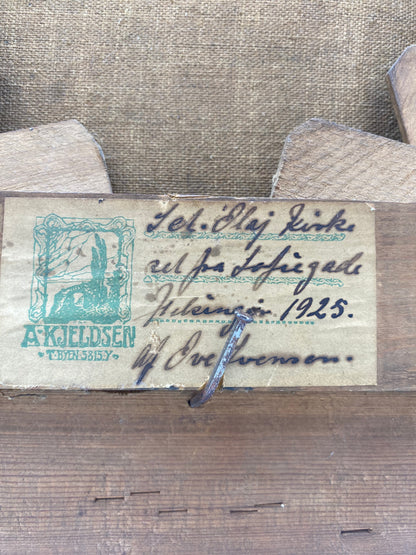 Sct. Olaj Kirke
set fra Sofiegade
Helsingør 1925.
Af Ove Svenson.
A·KJELDSEN
T. BYEN 5815.Y